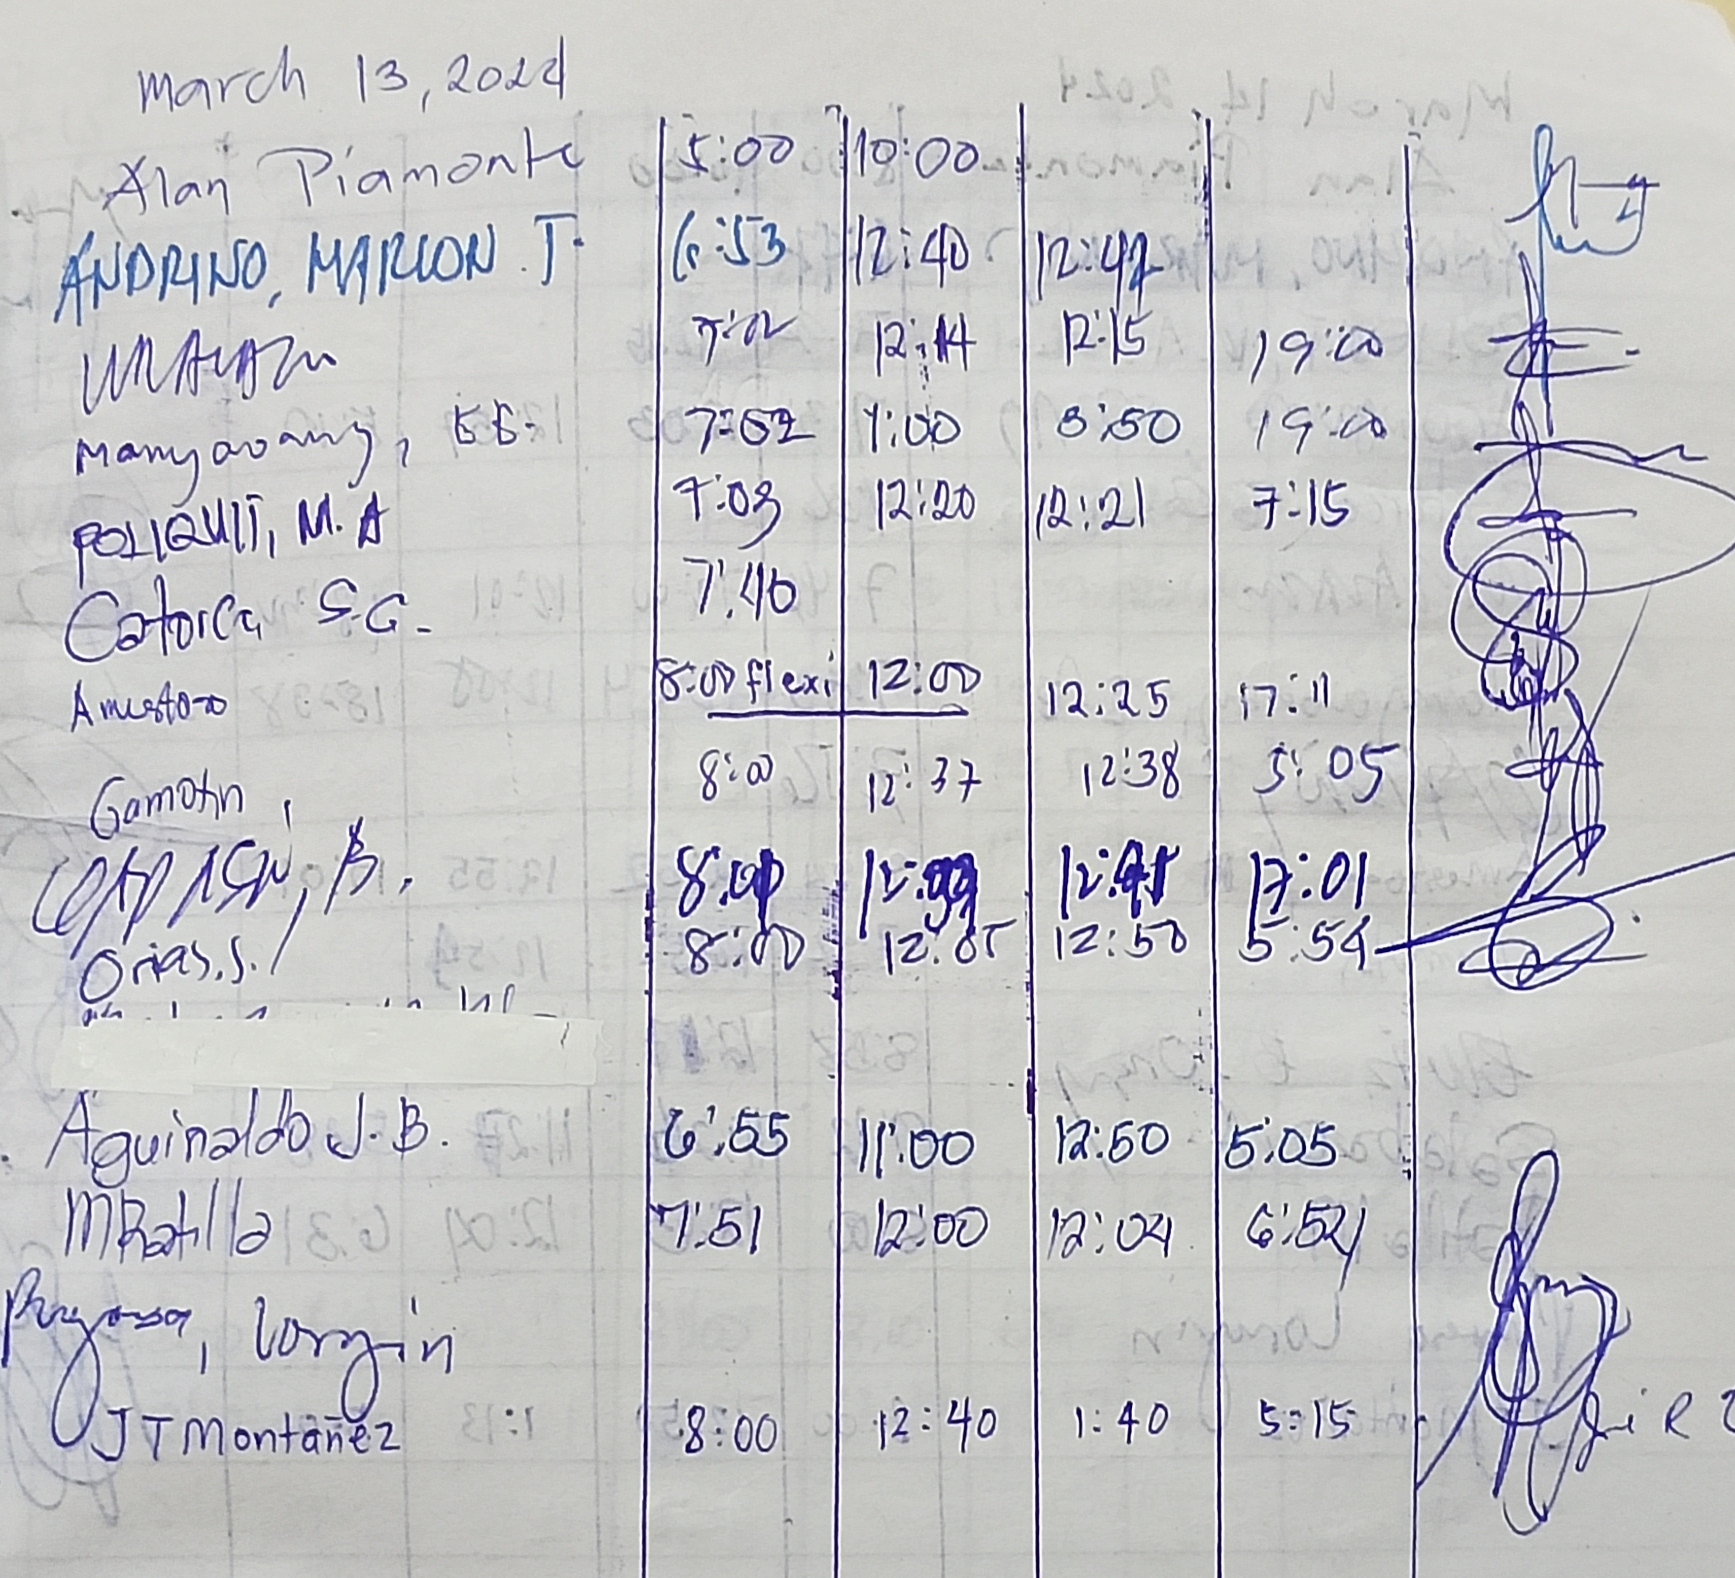 March 13, 2024
Alan Piamonte 5:00 10:00
ANDRINO, MARLON T. 6:53 12:40 12:42
7:02 12:14 12:15 19:00
7:52 1:00 3:50 19:00
POLIQUIT, M.A 7:03 12:20 12:21 7:15
Catorce S.G. 7:40
Amestoso 8:00 flexi 12:00 12:25 17:11
Gamotin, 8:00 12:37 12:38 5:05
B. 8:00 17:01
Orias, S. 8:00 12:05 12:50 5:54
Aguinaldo J.B. 6:55 11:00 12:50 5:05
MRatilla 7:51 12:00 12:04 6:52
Lorgin
JT Montañez 8:00 12:40 1:40 5:15